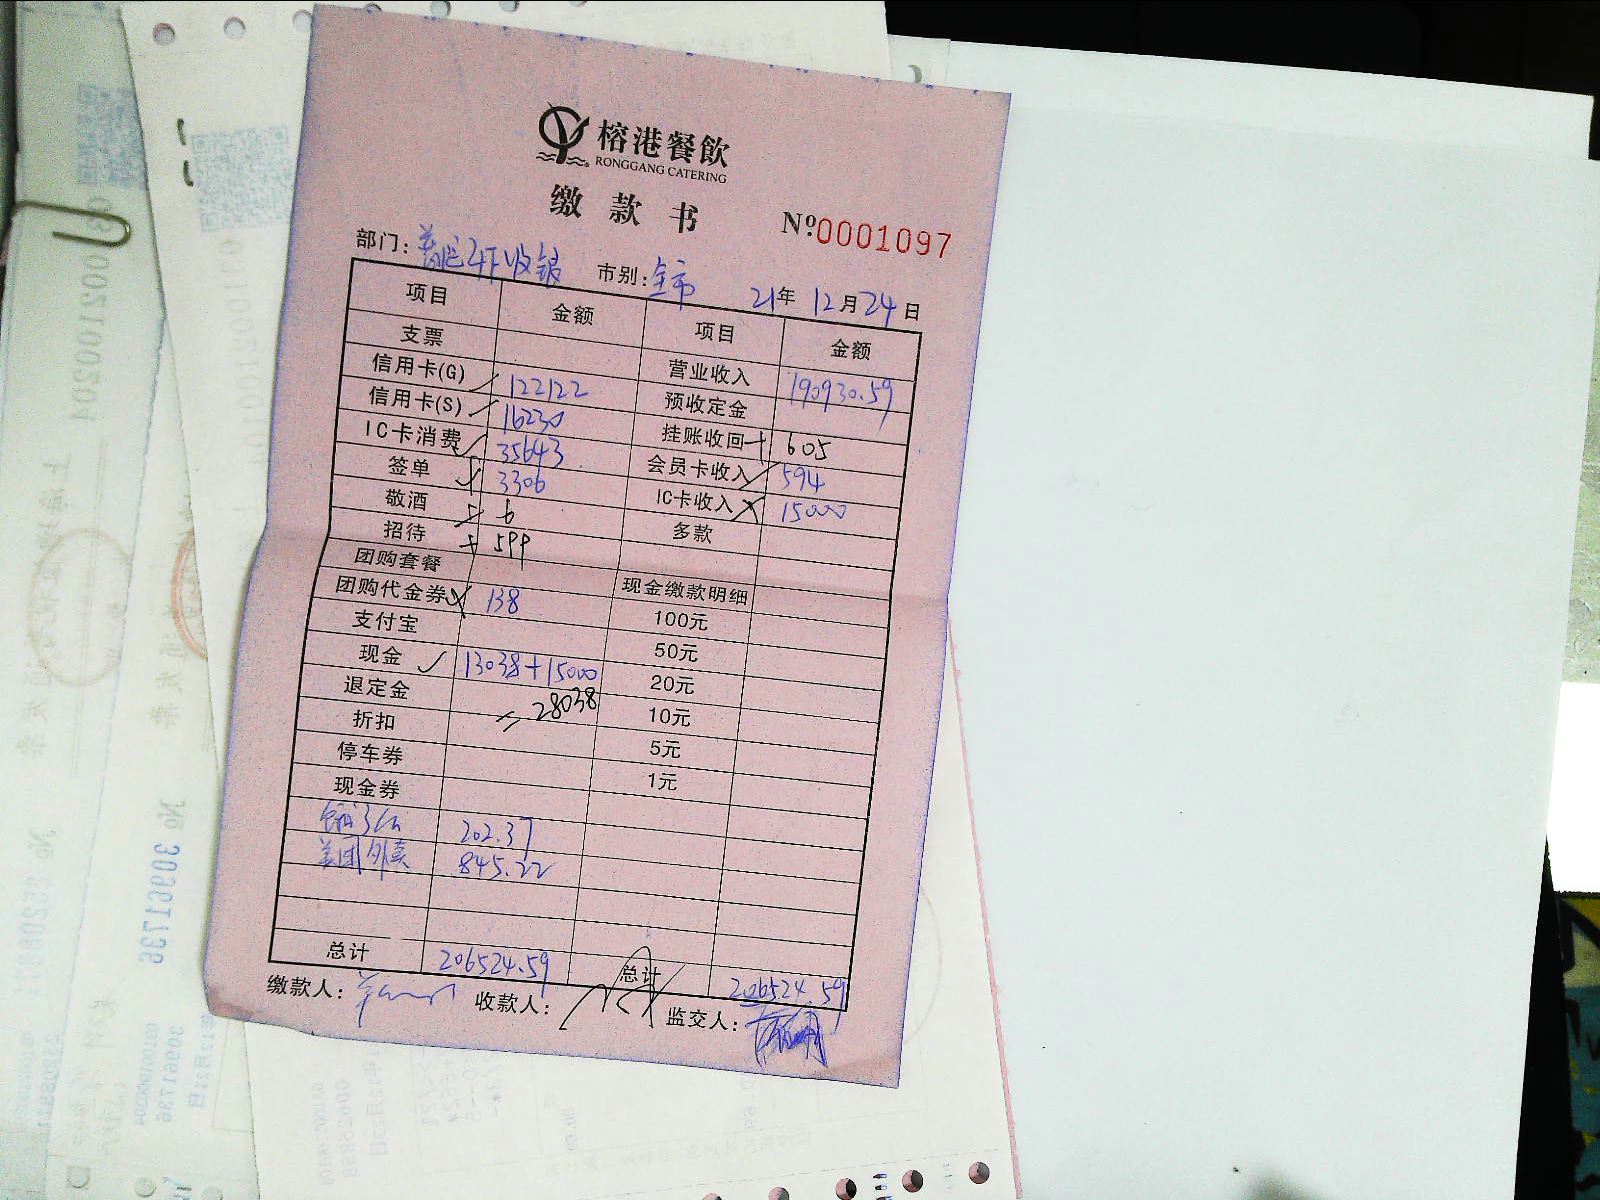 榕港餐飲
RONGGANG CATERING
缴款书 Nº0001097
部门: 收银 市别: 全市 21年 12月24日
项目 金额 项目 金额
支票 营业收入 190930.59
信用卡(G) 122122 预收定金
信用卡(S) 16230 挂账收回 605
IC卡消费 35643 会员卡收入 594
签单 3306 IC卡收入 15000
敬酒 6 多款
招待 599
团购套餐 现金缴款明细
团购代金券 138 100元
支付宝 50元
现金 13038+15000 20元
退定金 = 28038 10元
折扣 5元
停车券 1元
现金券
202.37
美团外卖 845.22
总计 206524.59 总计 206524.59
缴款人: 收款人: 监交人:
No 30961736
30961736